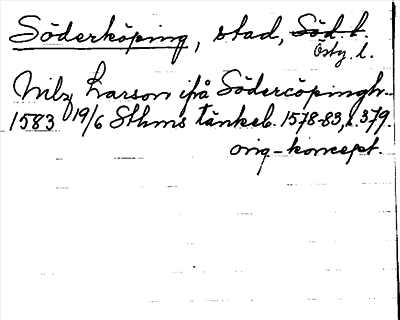 Söderköping, stad, Söd.l.
Östg. l.
Nils Larson ifrå Södercöpingh
1583 19/6 Sthms tänkeb. 1578-83, s. 379.
orig-koncept.